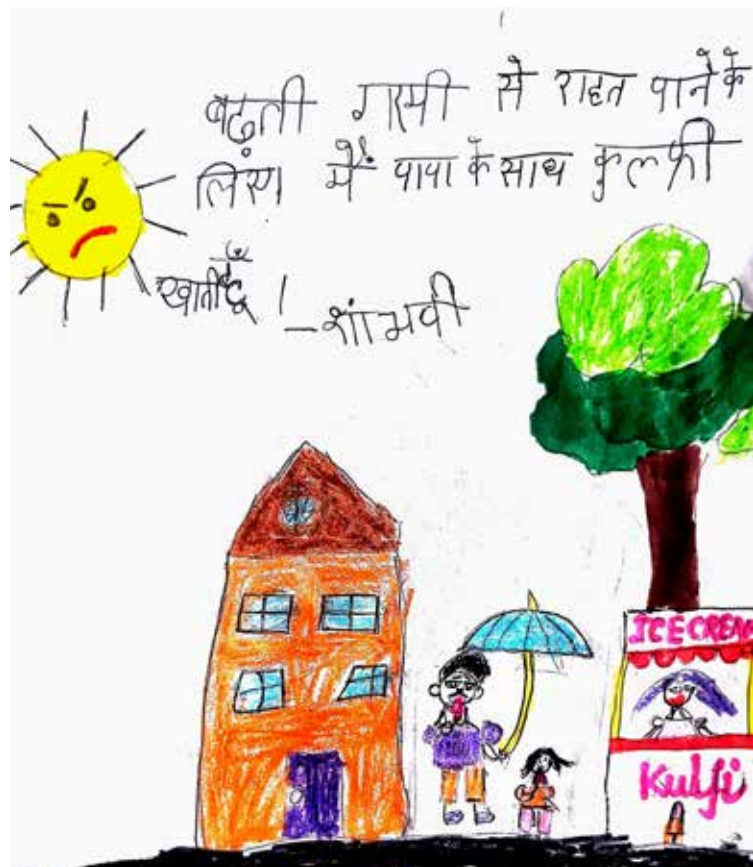 बढ़ती गरमी से राहत पाने के
लिए मैं पापा के साथ कुल्फी
खाती हूँ ! - शांभवी
ICE CREAM
Kulfi